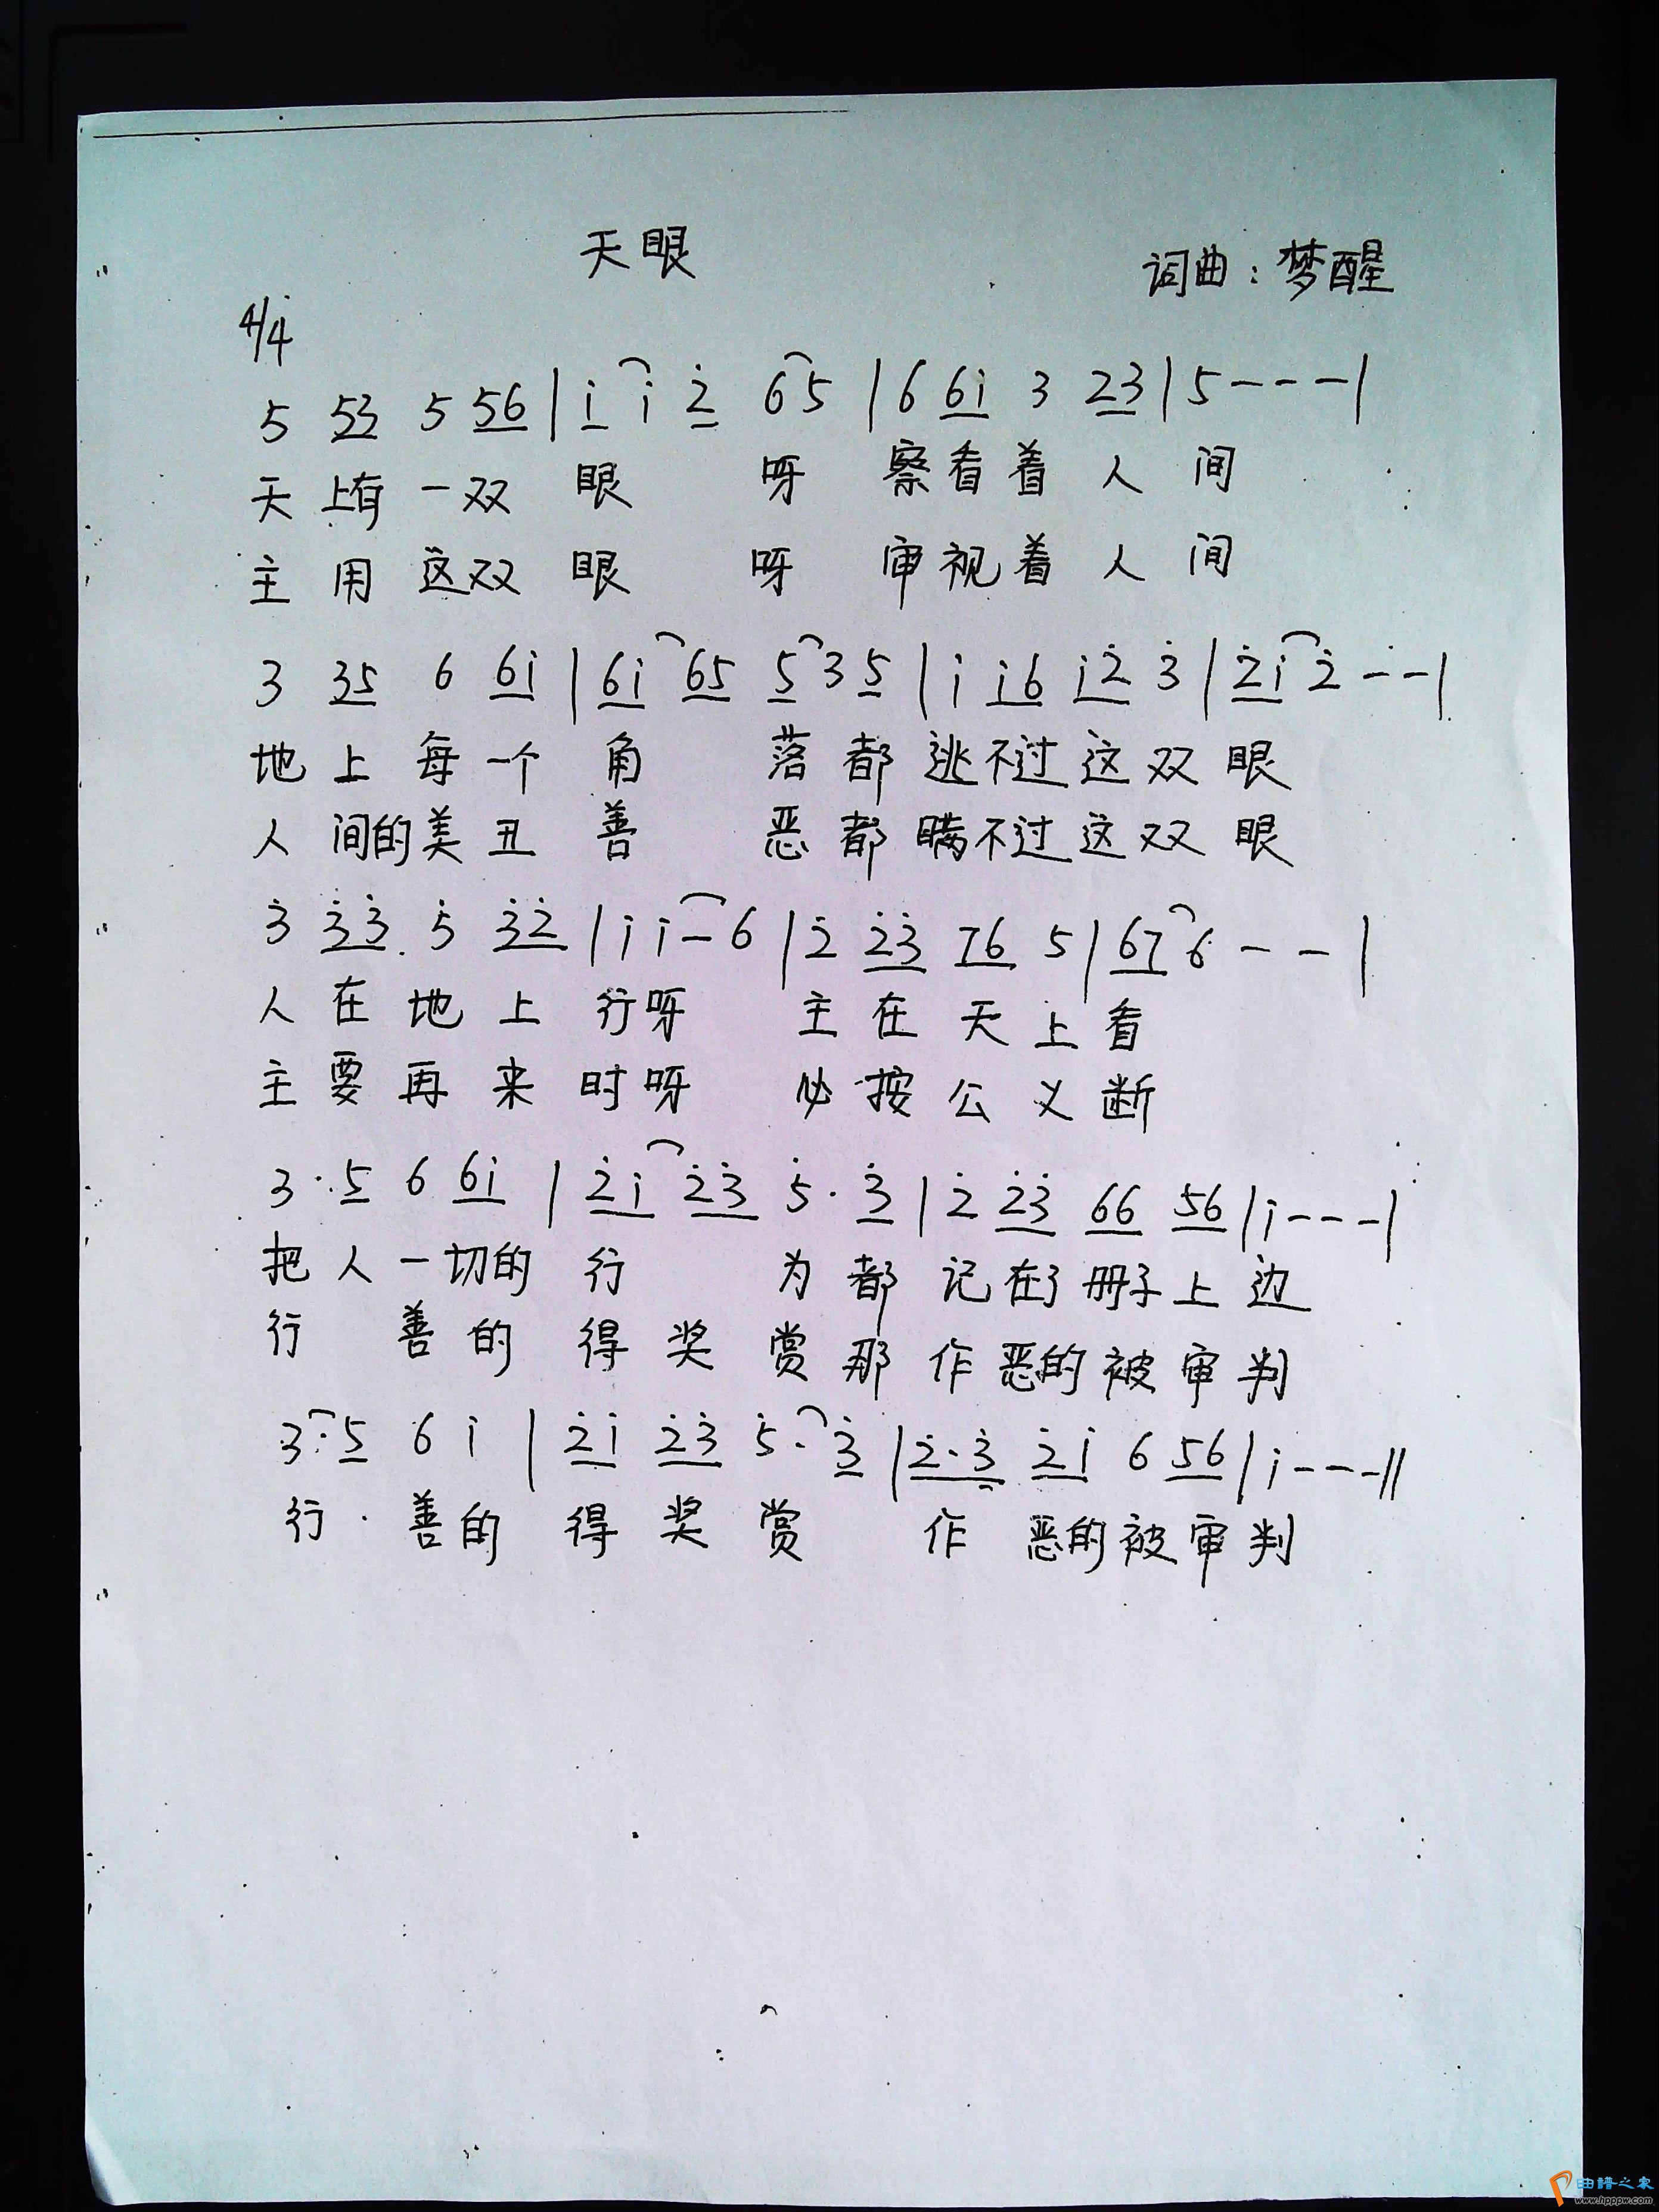 天眼
词曲：梦醒
4/4
5 53 5 56 | i i 2̇ 65 | 6 6i 3 23 | 5 - - - |
天上有一双眼 呀 察看着人间
主用这双眼 呀 审视着人间
3 35 6 6i | 6i 65 5 3 5 | i i6 i2̇ 3̇ | 2̇i 2̇ - - |
地上每一个角 落都逃不过这双眼
人间的美丑善 恶都瞒不过这双眼
3̇ 3̇3̇ 5̇ 3̇2̇ | i i - 6 | 2̇ 2̇3̇ 76 5 | 67 6 - - |
人在地上行呀 主在天上看
主要再来时呀 必按公义断
3· 5 6 6i | 2̇i 2̇3̇ 5̇· 3̇ | 2̇ 2̇3̇ 66 56 | i - - - |
把人一切的行 为都记在了册子上边
行 善的得奖赏那作恶的被审判
3· 5 6 i | 2̇i 2̇3̇ 5̇· 3̇ | 2̇·3̇ 2̇i 6 56 | i - - - ||
行·善的得奖赏 作 恶的被审判
曲谱之家
www.hppw.com